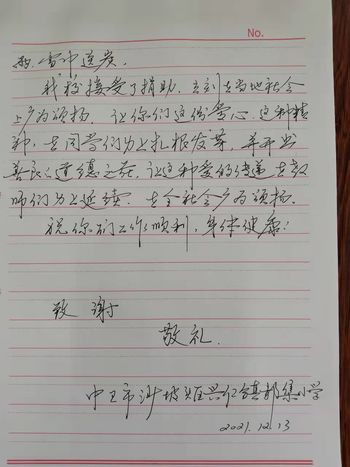 No.
雪中送炭。
我校接受了捐助，立刻在当地社会
上广为颂扬，让你们这份爱心，这种精
神，在同学们身上扎根发芽，并开出
善良、道德之花，让这种爱的传递，在教
师们身上延续，在全社会广为颂扬。
祝你们工作顺利，身体健康！
致谢
敬礼
中卫市沙坡头区兴仁镇郝集小学
2021.12.13